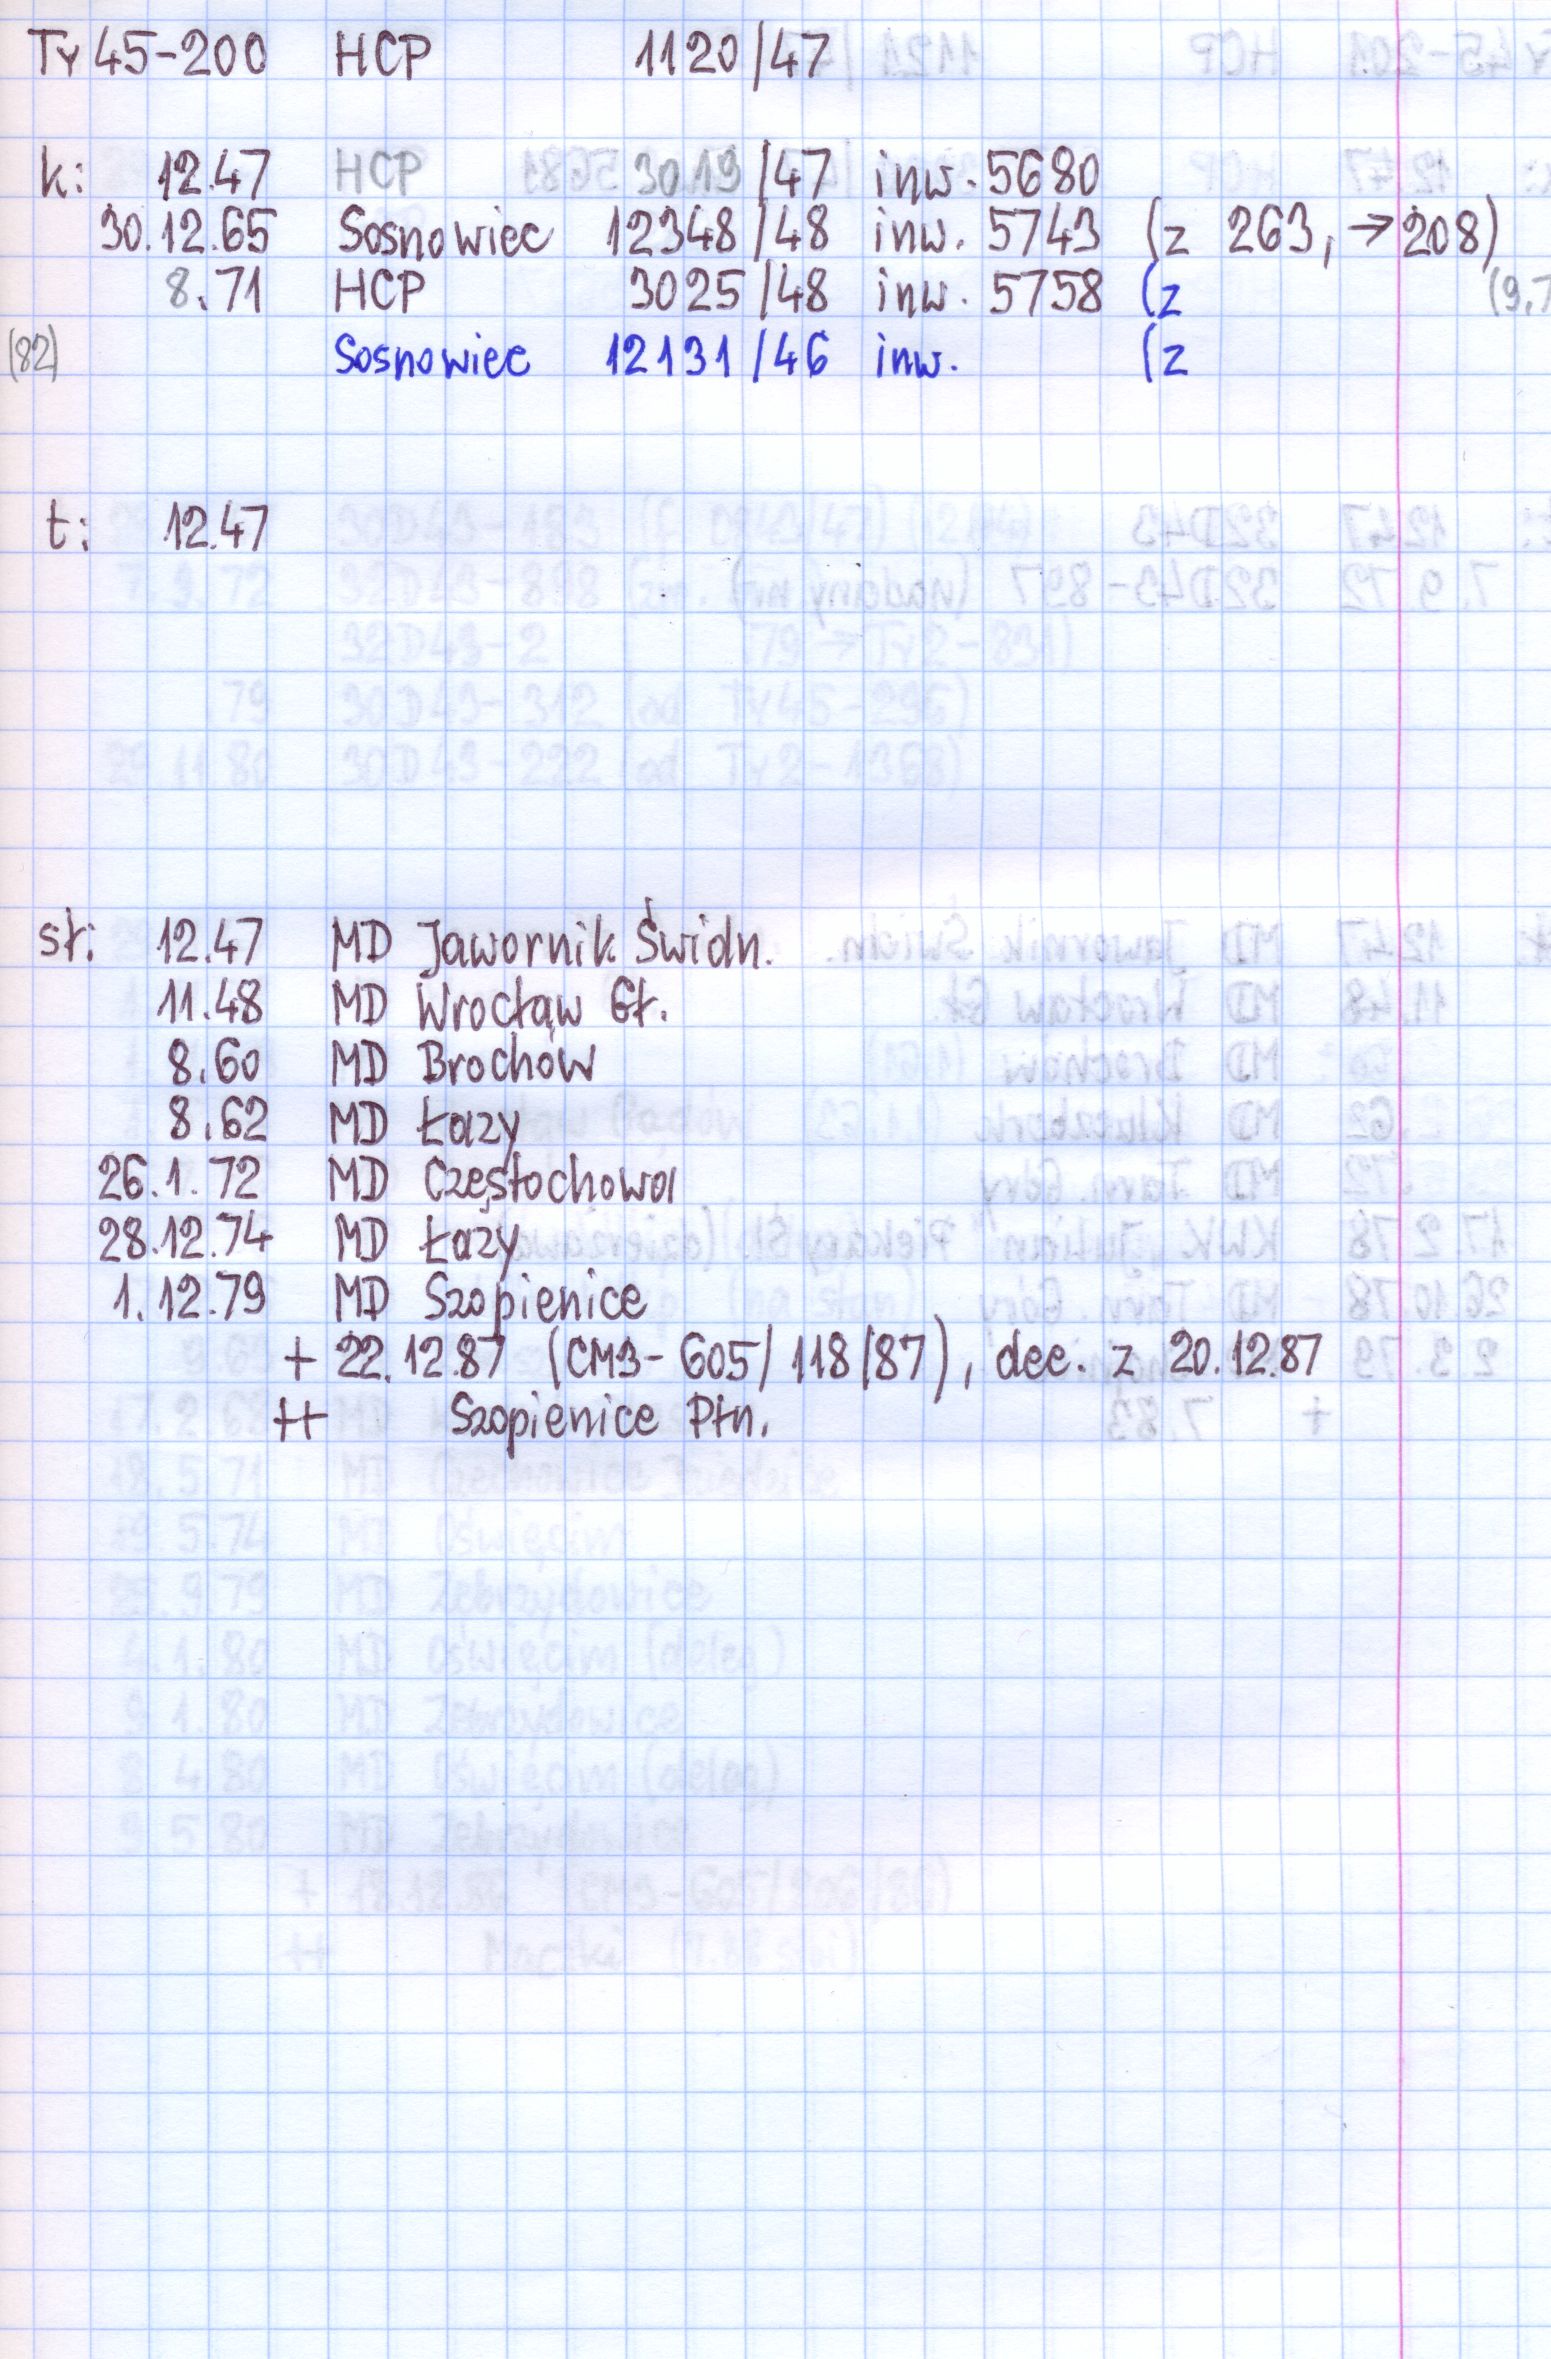 Ty45-200 HCP 1120/47
k: 12.47 HCP 3019/47 inw. 5680
30.12.65 Sosnowiec 12348/48 inw. 5743 (z 263, → 208)
8.71 HCP 3025/48 inw. 5758 (z (9.7
(82) Sosnowiec 12131/46 inw. (z
t: 12.47
sł: 12.47 MD Jawornik Świdn.
11.48 MD Wrocław Gł.
8.60 MD Brochów
8.62 MD Łazy
26.1.72 MD Częstochowa
28.12.74 MD Łazy
1.12.79 MD Szopienice
+ 22.12.87 (CM3-605/118/87), dec. z 20.12.87
++ Szopienice Płn.